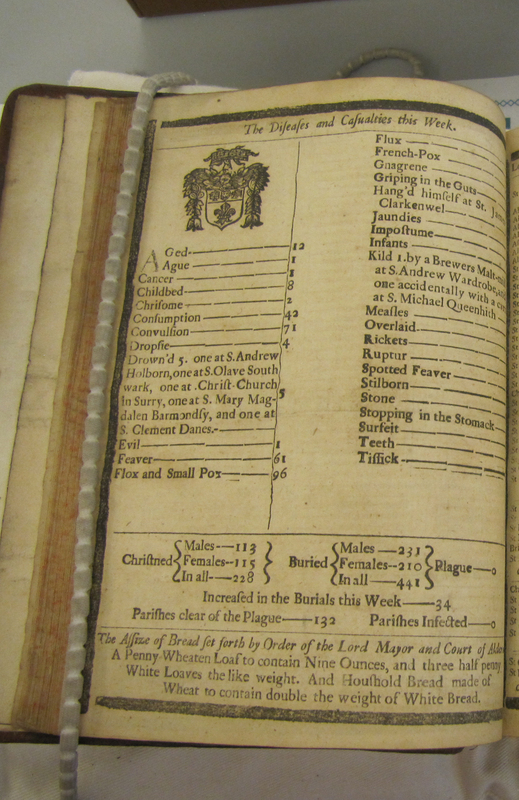 The Diſeaſes and Caſualties this Week.
AGed 12
Ague 1
Cancer 1
Childbed 8
Chriſome 2
Conſumption 42
Convulſion 71
Dropſie 4
Drown'd 5. one at S. Andrew
Holborn, one at S. Olave South
wark, one at Chriſt-Church
In Surry, one at S. Mary Mag- 5
dalen Barmondſy, and one at
S. Clement Danes.
Evil 1
Feaver 61
Flox and Small Pox 96
Flux
French-Pox
Gnagrene
Griping in the Guts
Hang'd himſelf at St.
Clarkenwel
Jaundies
Impoſtume
Infants
Kild 1. by a Brewers
at S. Andrew Wardrobe,
one accidentally with a
at S. Michael Queenhith
Meaſles
Overlaid
Rickets
Ruptur
Spotted Feaver
Stilborn
Stone
Stopping in the Stomack
Surfeit
Teeth
Tiſſick
Chriſtned { Males—113 Females—115 In all—228 } Buried { Males—231 Females—210 In all—441 } Plague—0
Increaſed in the Burials this Week—34
Pariſhes clear of the Plague—132 Pariſhes Infected—0
The Aſſize of Bread ſet forth by Order of the Lord Mayor and Court of
A Penny Wheaten Loaf to contain Nine Ounces, and three half penny
White Loaves the like weight. And Houſhold Bread made of
Wheat to contain double the weight of White Bread.